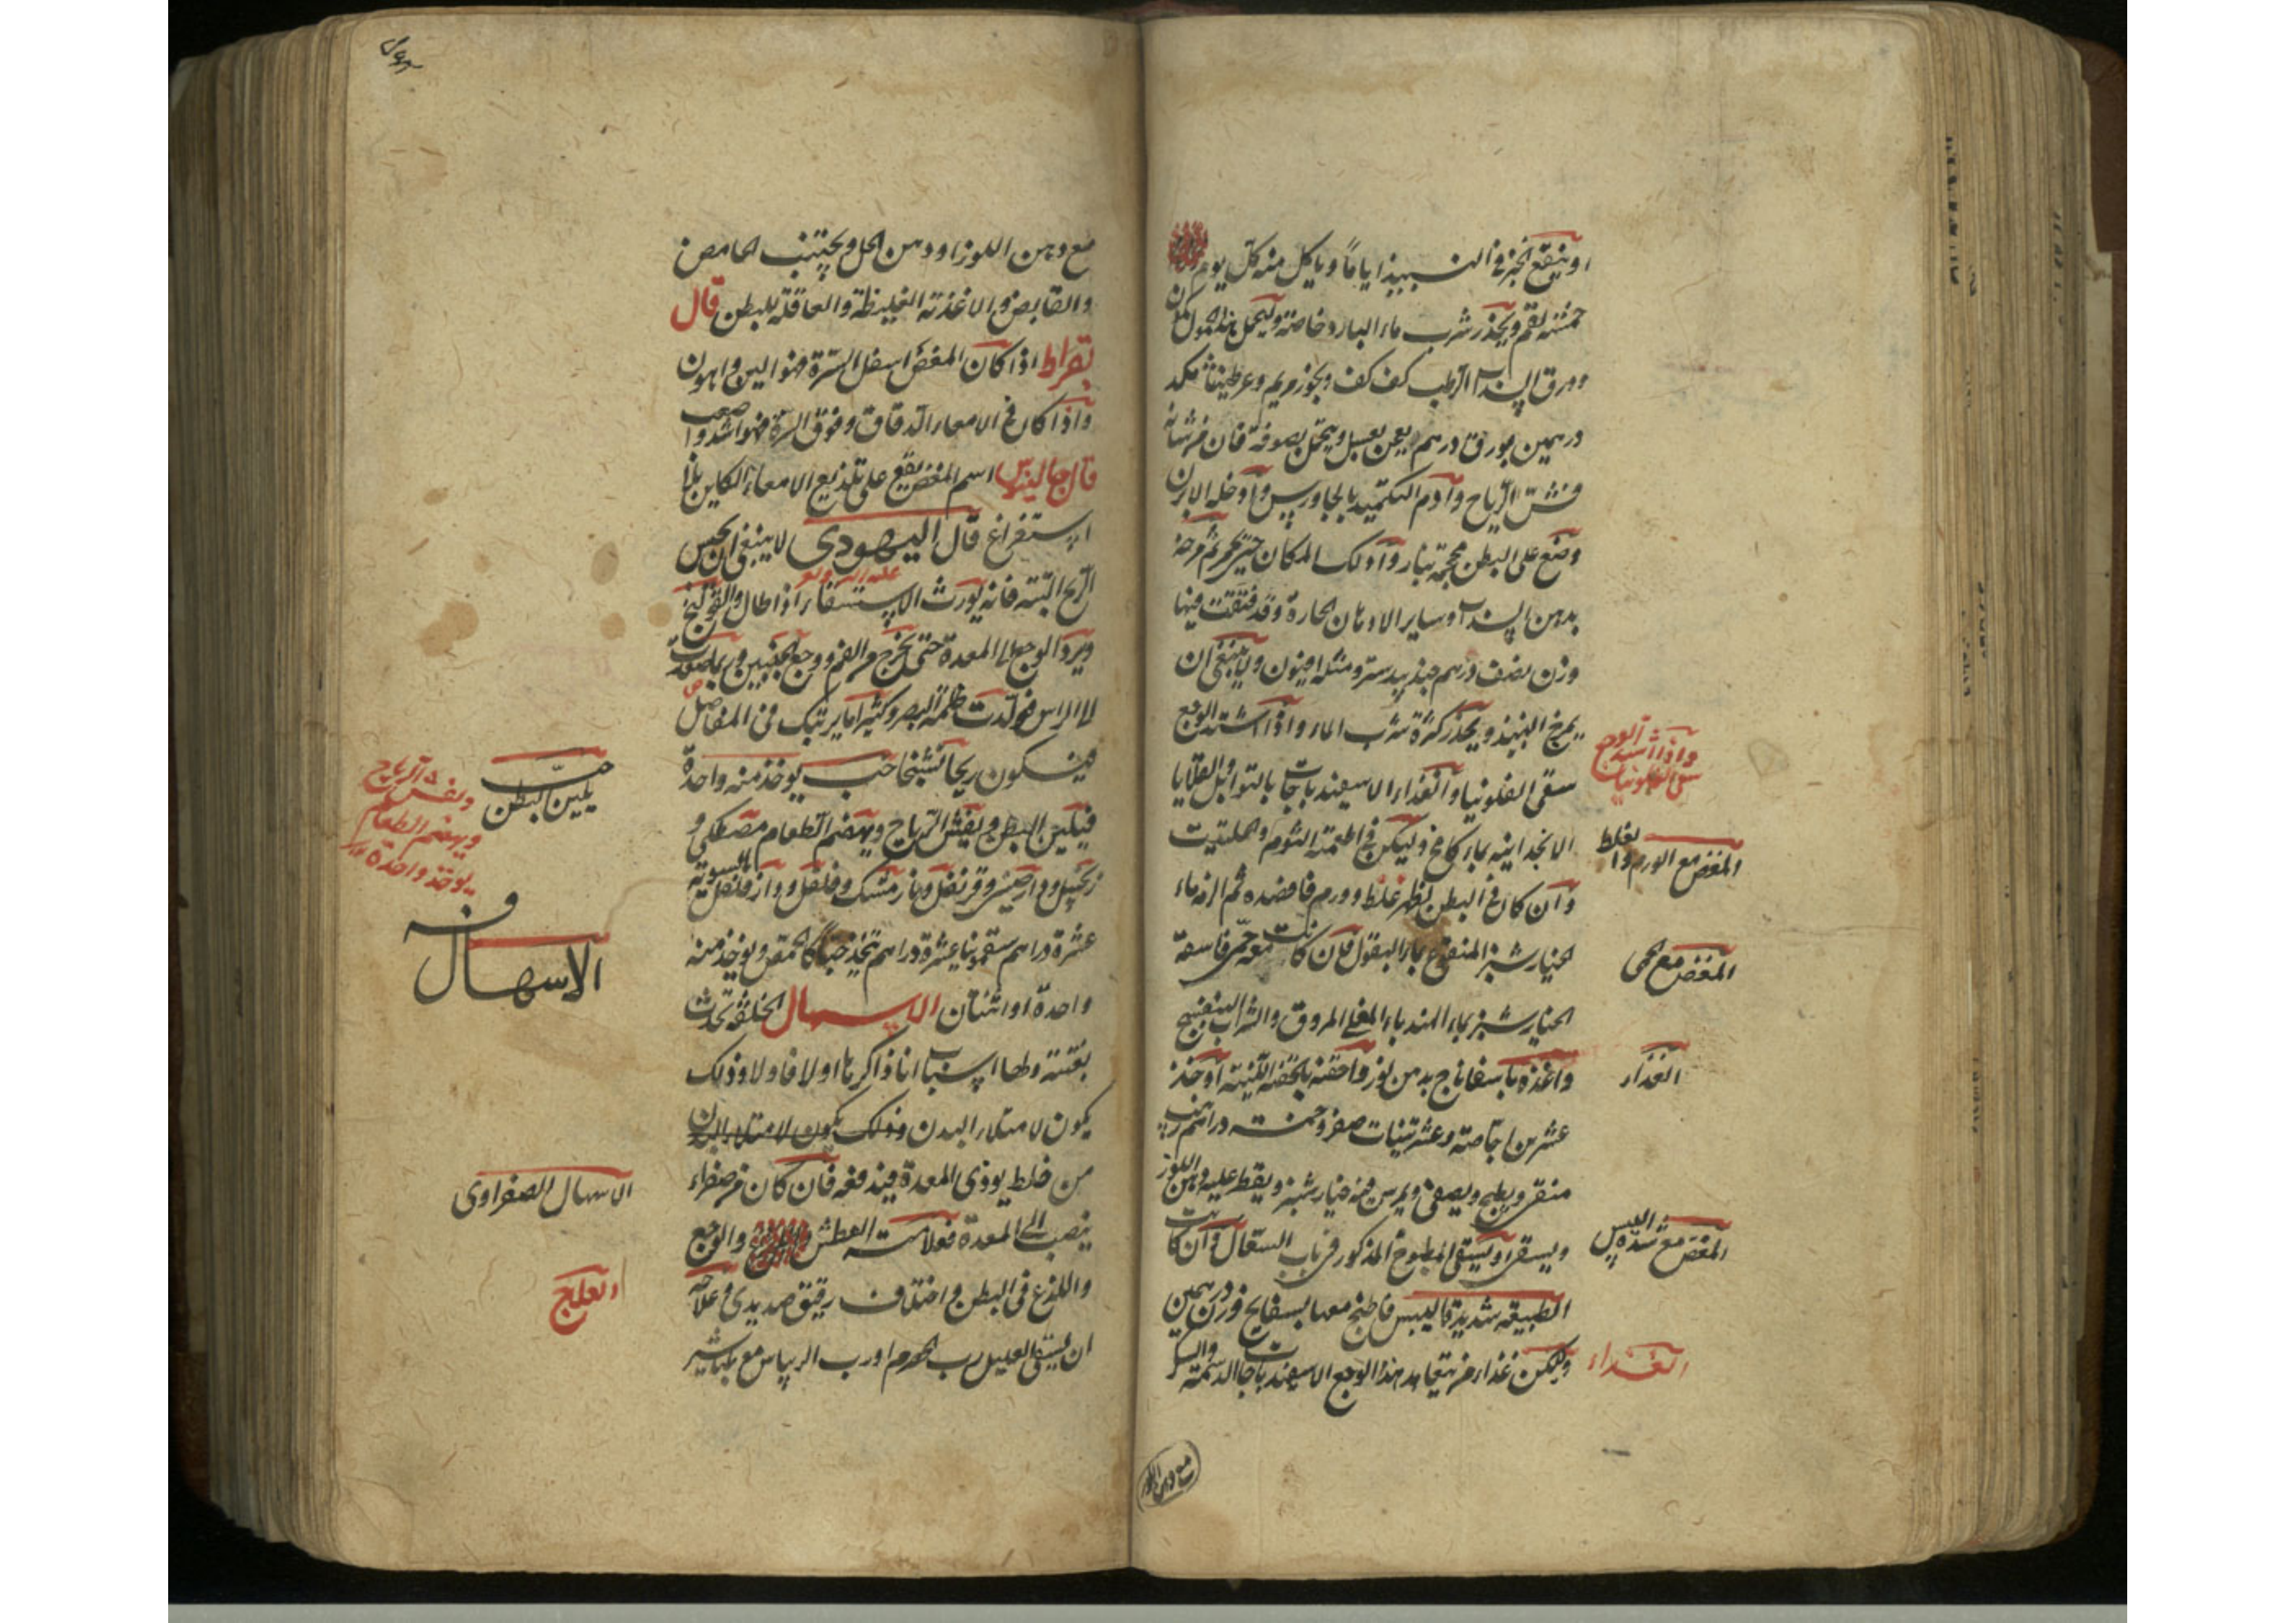 او ينقع الخبز في النبيذ اياماً و ياكل منه كل يوم
خمسة لقم ويحذر شرب ماء البارد خاصة وليحمل هذا الحمول
وورق السنداب الرطب كف كف وبخور مريم وعرطنيثا
درهمين بورق درهم يعجن بعسل ويتحمل بصوفة فان
فش الرياح وادم التكميد بالجاورس وادخله الابزن
وضع على البطن محجمة بنار وادلك المكان حتى يحمر ثم مرخه
بدهن السنداب او ساير الادهان الحارة وقد فتقت فيها
وزن نصف درهم جندبيدستر ومثله افيون ولا ينبغي ان
يمزج النبيذ ويحذر كثرة شرب الماء واذا اشتد الوجع
سقى الفلونيا والغذاء الاسفيدباجات بالتوابل والقلايا
الانجدانيه بماء كامخ وليكن في اطعمته الثوم والحلتيت
وان كان في البطن يظهر غلظ وورم فافصده ثم الزمه ماء
الخيارشنبر المنقوع بماء البقول فان كانت معه حمى فاسقه
الخيارشنبر بماء الهندباء المغلي المروق والشراب البنفسج
واغذه باسفاناج بدهن لوز واحقنه بالحقنه اللينة او خذ
عشرين اجاصة وعشر تينات صفر وخمسة دراهم زبيب
منقى ويطبخ ويصفى ويمرس فيه خيارشنبر ويقطر عليه دهن اللوز
ويسقى او يسقى المطبوخ المذكور في باب السعال وان كانت
الطبيعة شديدة اليبس فاطبخ معها بسفايج وزن درهمين
وليكن غذاء من يتعاهد هذا الوجع الاسفيدباجات الدسمة والسكر
واذا اشتد الوجع
سقى الفلونيا
المغص مع الورم والغلظ
المغص مع الحمى
الغذاء
المغص مع شدة اليبس
الغذاء
مع دهن اللوز
مع دهن اللوز او دهن الخل ويجتنب الحامض
والقابض والاغذية الغليظة والعاقلة للبطن قال
بقراط اذا كان المغص اسفل السرة فهو الين واهون
واذا كان في الامعاء الدقاق وفوق السرة فهو اشد واصعب
قال جالينوس اسم المغص يقع على تلذيع الامعاء الكاين بلا
استفراغ قال اليهودي لا ينبغي ان يحبس
الريح البتة فانه يورث الاستسقاء اذا طال والقولنج
ويرد الوجع الى المعدة حتى يخرج من الفم ووجع الجنبين وربما صعدت
الى الراس فولدت ظلمة البصر وكثيرا ما يرتبك في المفاصل
فيكون ريحا تشنجا حب يوخذ منه واحدة
فيلين البطن ويفش الرياح ويهضم الطعام مصطكى و
زنجبيل ودارصيني وقرنفل ونارمشك وفلفل ودارفلفل بالسوية
عشرة دراهم سقمونيا عشرة دراهم يتخذ حبا كالحمص ويوخذ منه
واحدة او اثنتان الاسهال الخلفة تحدث
بغتة ولها اسباب انا ذاكرها اولا فاولا وذلك
يكون لامتلاء البدن وذلك يكون لامتلاء البدن
من خلط يوذي المعدة فيدفعه فان كان من صفراء
ينصب الى المعدة فعلامته العطش والوجع
واللذع في البطن واختلاف رقيق صديدي وعلاجه
ان يسقى العليل رب الحصرم او رب الريباس مع طباشير
حب
يلين البطن
ويفش الرياح
ويهضم الطعام
يوخذ واحدة
الاسهال
الاسهال الصفراوي
العلاج